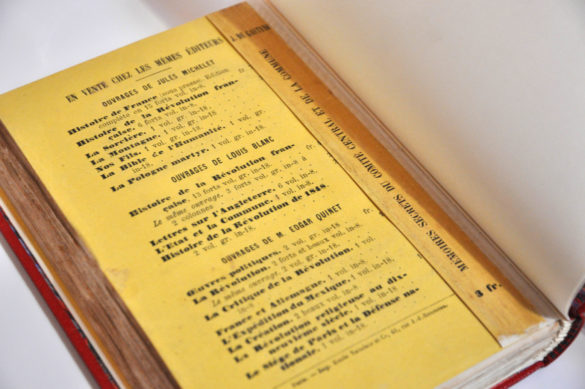 EN VENTE CHEZ LES MÊMES ÉDITEURS
OUVRAGES DE JULES MICHELET
Histoire de France (sous presse). Édition
complète en 15 forts vol. in-8.
Histoire de la Révolution fran-
çaise, 6 forts vol. in-8.
La Sorcière, 1 vol. gr. in-18.
La Montagne, 1 vol. gr. in-18
Nos Fils, 1 vol. gr. in-18
La Bible de l'Humanité, 1 vol. gr.
in-18
La Pologne martyr, 1 vol. gr. in-18.
OUVRAGES DE LOUIS BLANC
Histoire de la Révolution fran-
çaise, forts vol. gr. in-18.
Le même ouvrage, 2 forts vol. gr. in-8 à
2 colonnes
Lettres sur l'Angleterre, 6 vol. in-8.
L'Etat et la Commune, 1 vol. in-8.
Histoire de la Révolution de 1848,
2 vol. gr. in-18.
OUVRAGES DE M. EDGAR QUINET
Œuvres politiques, 2 vol. gr. in-18. fr.
La Révolution, 2 forts et beaux vol. in-8.
Le même ouvrage, 2 vol. gr. in-18.
La Critique de la Révolution, 1 vol.
in-8.
France et Allemagne, 1 vol. in-18.
L'Expédition du Mexique, 1 vol. in-18.
La Création, 2 beaux vol. in-8
La Révolution religieuse au dix-
neuvième siècle, 1 vol. in-18
Le Siège de Paris et la Défense na-
tionale, 1 vol. in-18.
MÉMOIRES SECRETS DU COMITÉ CENTRAL ET DE LA COMMUNE
3 fr.